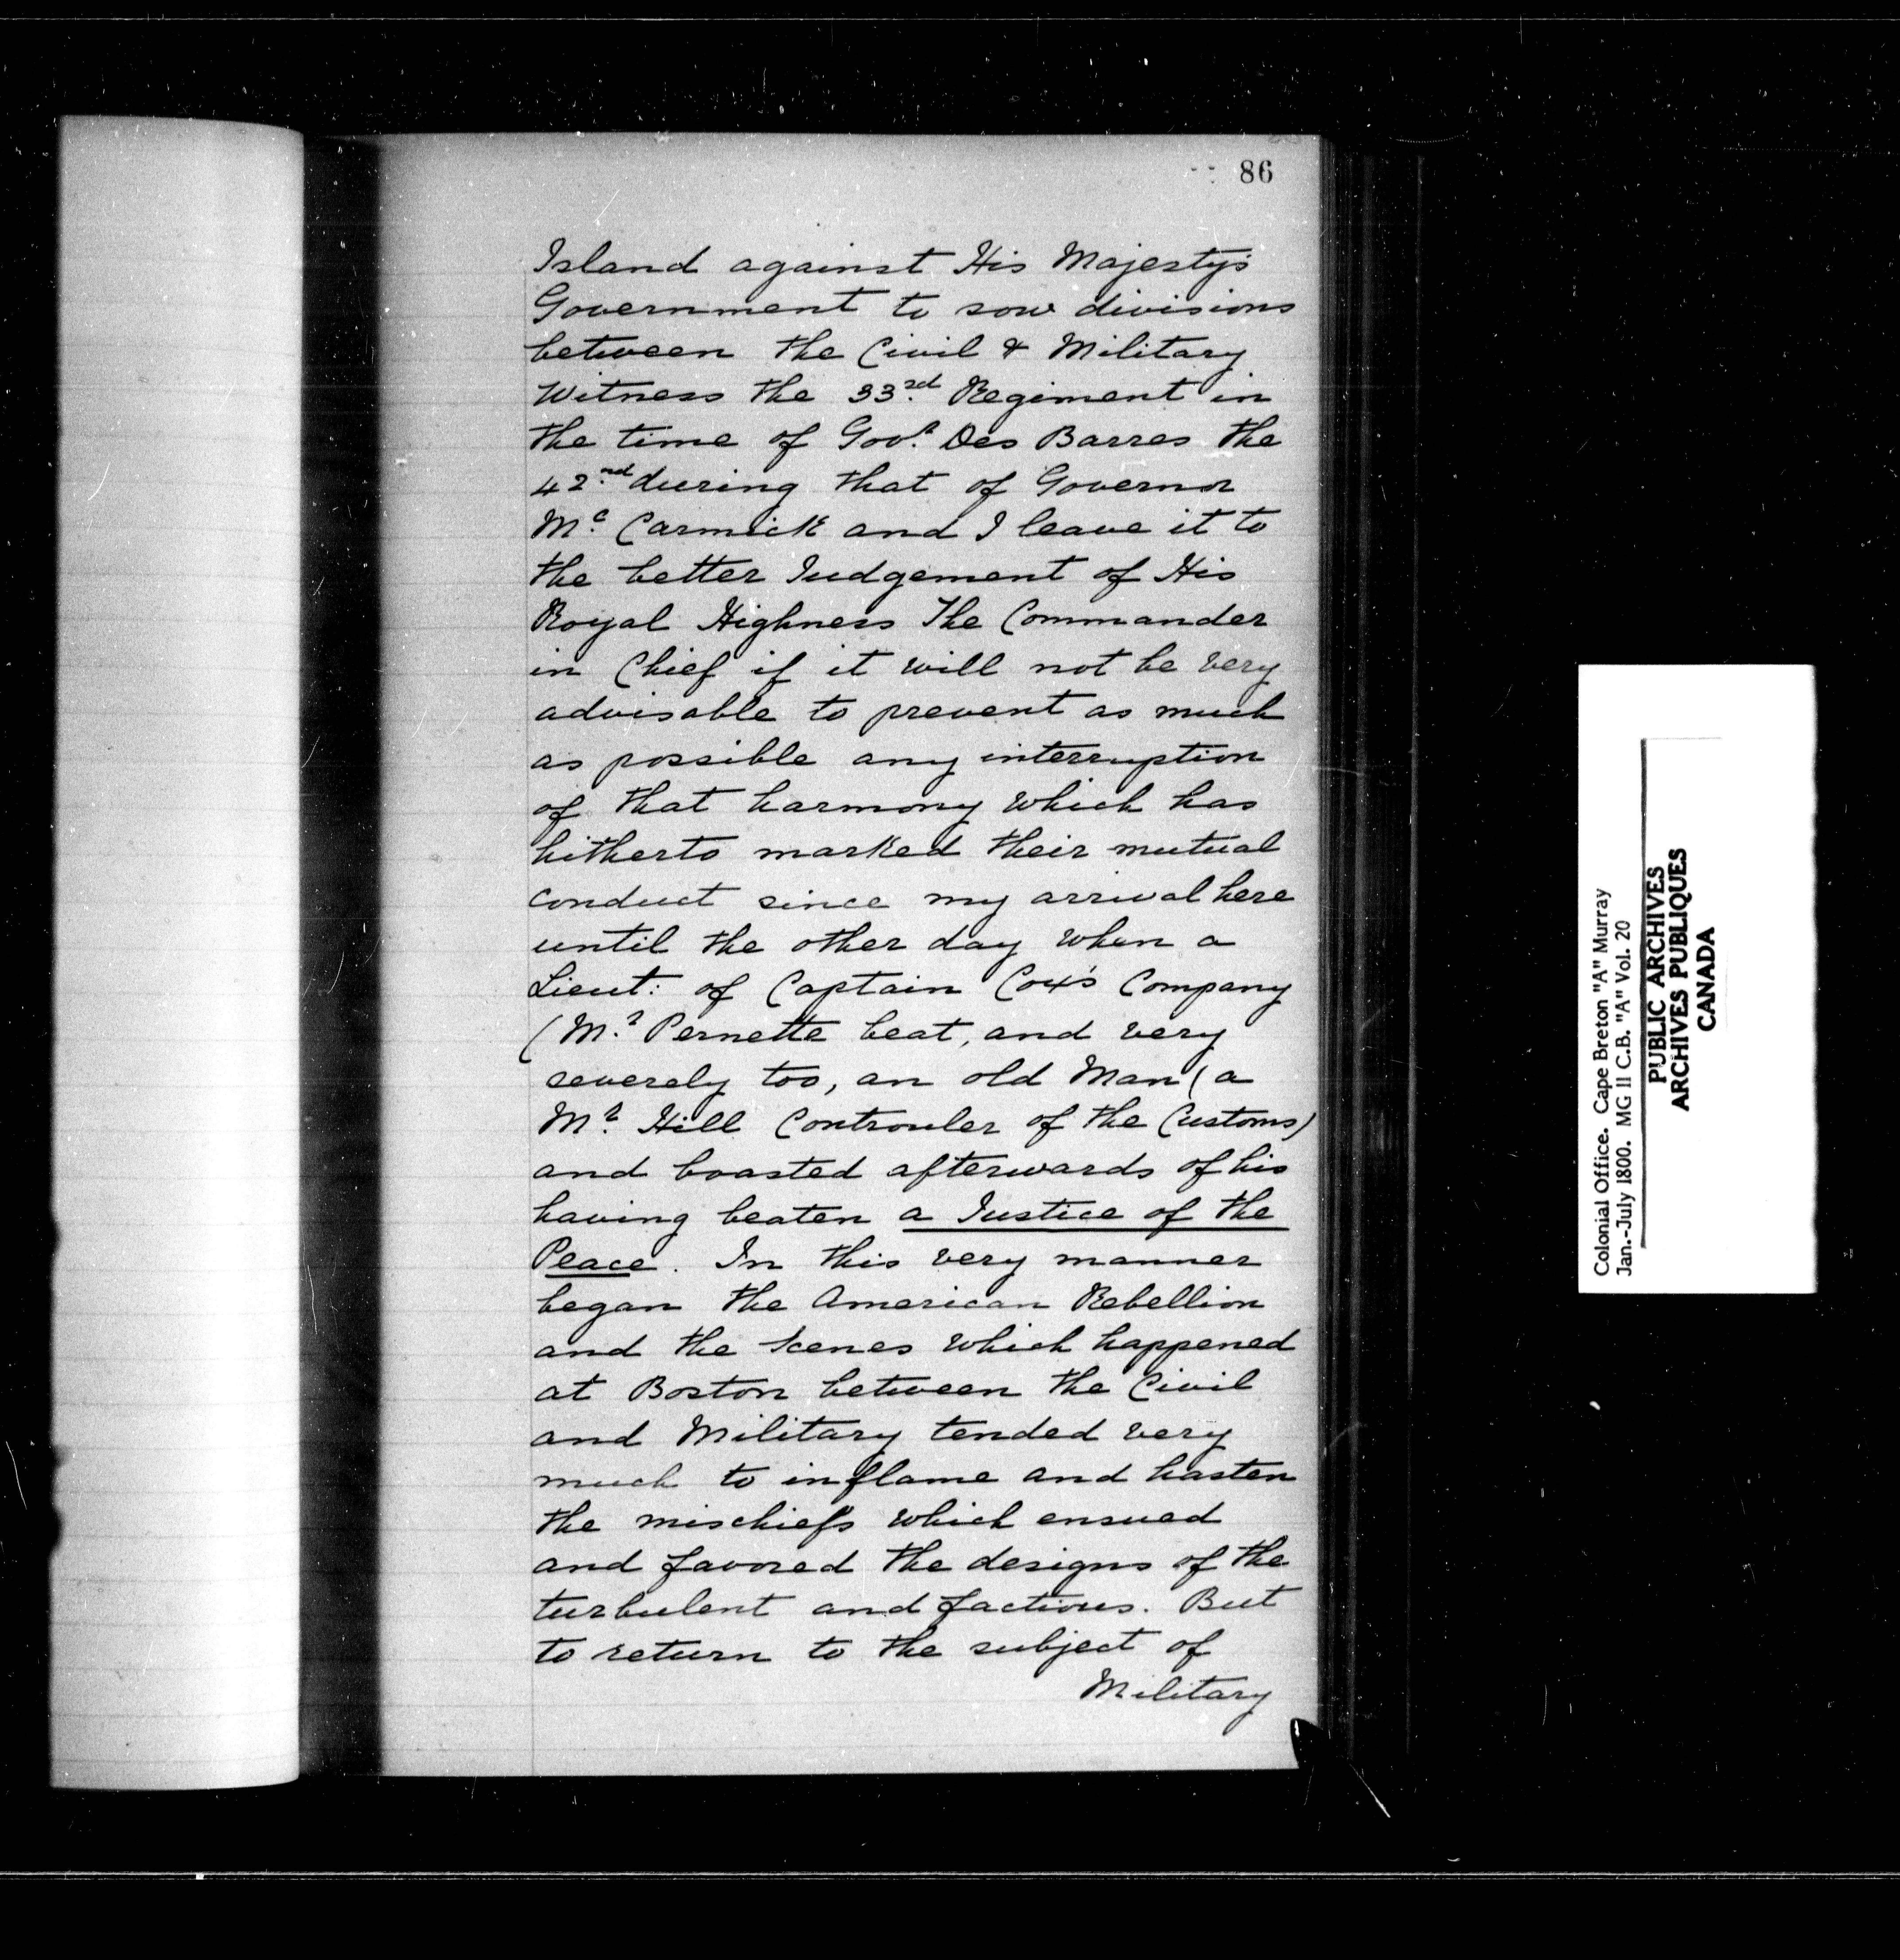 86
Island against His Majesty's
Government to sow divisions
between the Civil & Military
Witness the 33rd Regiment in
the time of Govr Des Barres the
42nd during that of Governor
Mc Carmick and I leave it to
the better Judgement of His
Royal Highness The Commander
in Chief if it will not be very
advisable to prevent as much
as possible any interruption
of that harmony which has
hitherto marked their mutual
conduct since my arrival here
until the other day when a
Lieut: of Captain Cox's Company
(Mr Pernette beat, and very
severely too, an old Man (a
Mr Hill Controuler of the Customs)
and boasted afterwards of his
having beaten a Justice of the
Peace. In this very manner
began the American Rebellion
and the Scenes which happened
at Boston between the Civil
and Military tended very
much to inflame and hasten
the mischiefs which ensued
and favored the designs of the
turbulent and factious. But
to return to the subject of
Military
Colonial Office. Cape Breton "A" Murray
Jan.-July 1800. MG 11 C.B. "A" Vol. 20
PUBLIC ARCHIVES
ARCHIVES PUBLIQUES
CANADA